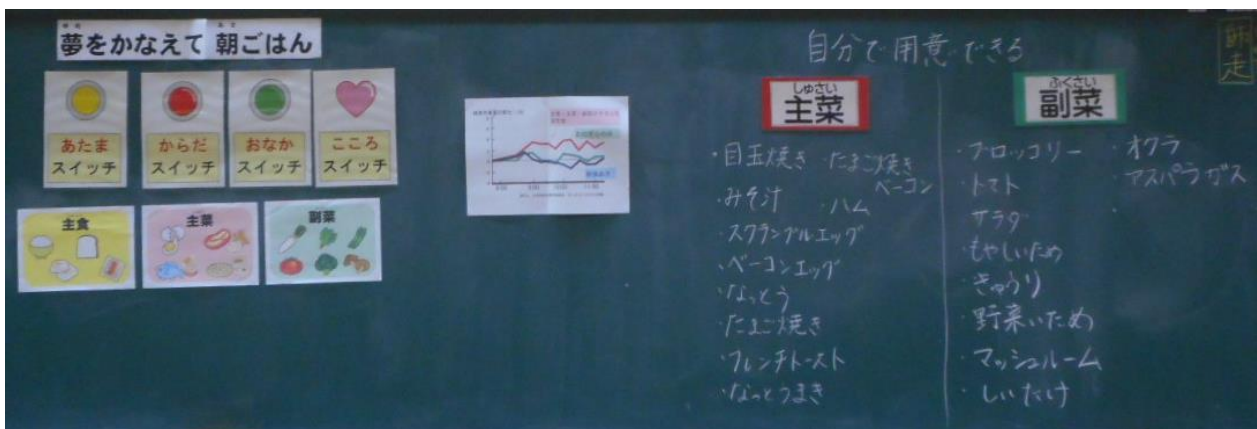 夢をかなえて 朝ごはん
あたま
スイッチ
からだ
スイッチ
おなか
スイッチ
こころ
スイッチ
主食
主菜
副菜
自分で用意できる
しゅさい
主菜
・目玉焼き ・たまご焼き
ベーコン
・みそ汁 ・ハム
・スクランブルエッグ
・ベーコンエッグ
・なっとう
・たまご焼き
・フレンチトースト
・なっとうまき
ふくさい
副菜
・ブロッコリー
・トマト
・サラダ
・もやしいため
・きゅうり
・野菜いため
・マッシュルーム
・しいたけ
・オクラ
・アスパラガス